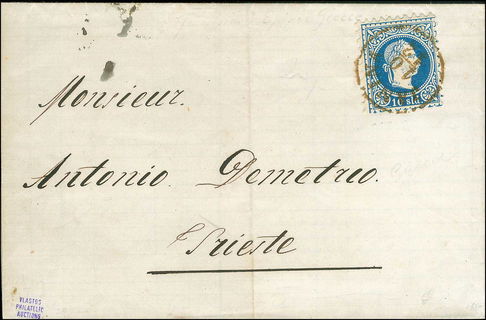 10 sld
Monsieur.
Antonio Demetrio.
Trieste
VLASTOS
PHILATELIC
AUCTIONS